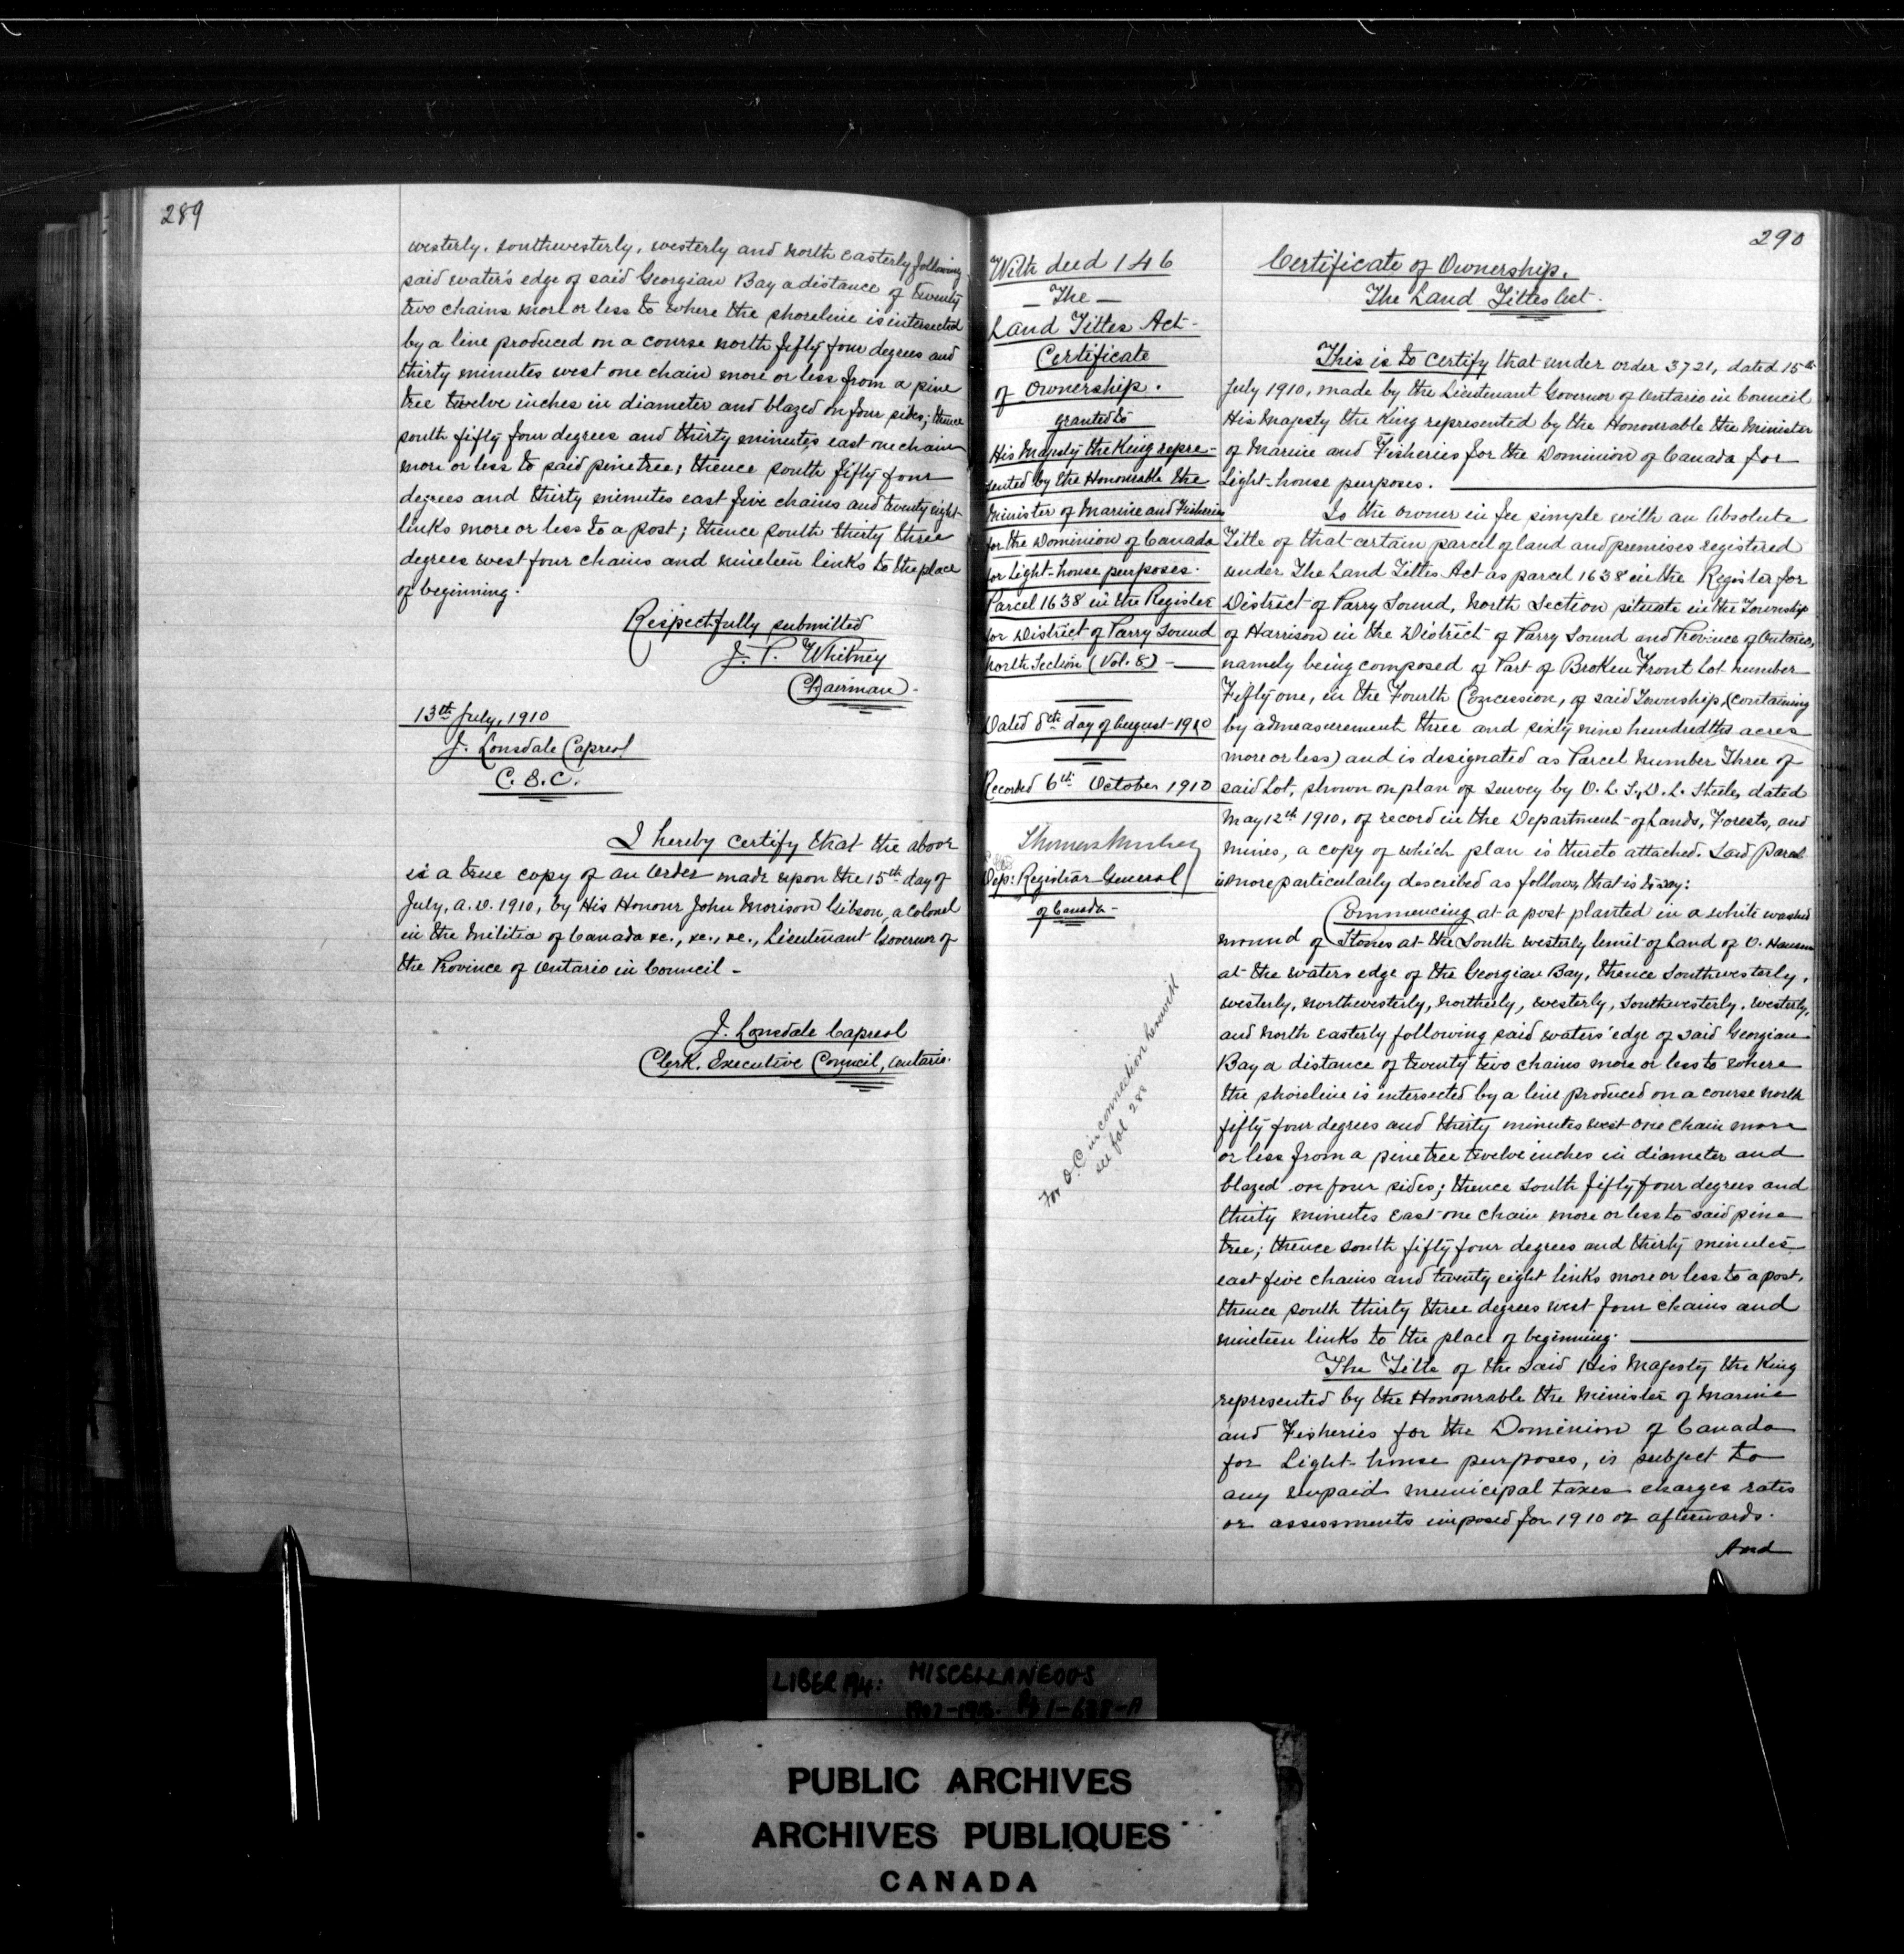 289
westerly, southwesterly, westerly and north easterly following
said water's edge of said Georgian Bay a distance of twenty
two chains more or less to where the shoreline is intersected
by a line produced on a course north fifty four degrees and
thirty minutes west one chain more or less from a pine
tree twelve inches in diameter and blazed on four sides; thence
south fifty four degrees and thirty minutes east one chain
more or less to said pine tree; thence south fifty four
degrees and thirty minutes east five chains and twenty eight
links more or less to a post; thence south thirty three
degrees west four chains and nineteen links to the place
of beginning.
Respectfully submitted
J. P. Whitney
Chairman.
13th July, 1910
J. Lonsdale Capreol
C. E. C.
I hereby certify that the above
is a true copy of an Order made upon the 15th day of
July, A.D. 1910, by His Honour John Morison Gibson, a Colonel
in the Militia of Canada &c., &c., &c., Lieutenant Governor of
the Province of Ontario in Council -
J. Lonsdale Capreol
Clerk, Executive Council, Ontario.
290
With deed 146
- The -
Land Titles Act -
Certificate
of Ownership.
granted to
His Majesty the King repre-
sented by the Honourable the
Minister of Marine and Fisheries
for the Dominion of Canada
for Light-house purposes.
Parcel 1638 in the Register
for District of Parry Sound
North Section (Vol. 8) -
Dated 8th day of August 1910
Recorded 6th October 1910
Thomas Mulvey
Dep: Registrar General
of Canada -
For O.C. in connection herewith
see fol 288
Certificate of Ownership.
The Land Titles Act.
This is to certify that under order 3721, dated 15th
July 1910, made by the Lieutenant Governor of Ontario in Council
His Majesty the King represented by the Honourable the Minister
of Marine and Fisheries for the Dominion of Canada for
Light-house purposes.
Is the owner in fee simple with an Absolute
Title of that certain parcel of land and premises registered
under The Land Titles Act as parcel 1638 in the Register for
District of Parry Sound, North Section situate in the Township
of Harrison in the District of Parry Sound and Province of Ontario,
namely being composed of Part of Broken Front Lot number
Fifty one, in the Fourth Concession, of said Township, (containing
by admeasurement three and sixty nine hundredths acres
more or less) and is designated as Parcel Number Three of
said Lot, shown on plan of survey by O. L. S., D. L. Steele, dated
May 12th 1910, of record in the Department of Lands, Forests, and
Mines, a copy of which plan is thereto attached. Said Parcel
is more particularly described as follows, that is to say:
Commencing at a post planted in a white washed
mound of Stones at the South westerly limit of Land of O.
at the waters edge of the Georgian Bay, thence Southwesterly,
westerly, northwesterly, northerly, westerly, Southwesterly, westerly,
and north easterly following said waters' edge of said Georgian
Bay a distance of twenty two chains more or less to where
the shoreline is intersected by a line produced on a course north
fifty four degrees and thirty minutes west one chain more
or less from a pine tree twelve inches in diameter and
blazed on four sides; thence South fifty four degrees and
thirty minutes east one chain more or less to said pine
tree; thence South fifty four degrees and thirty minutes
east five chains and twenty eight links more or less to a post,
thence south thirty three degrees west four chains and
nineteen links to the place of beginning.
The Title of the said His Majesty the King
represented by the Honourable the Minister of Marine
and Fisheries for the Dominion of Canada
for Light-house purposes, is subject to
any unpaid municipal taxes charges rates
or assessments imposed for 1910 or afterwards.
And
LIBER 194: MISCELLANEOUS
PUBLIC ARCHIVES
ARCHIVES PUBLIQUES
CANADA